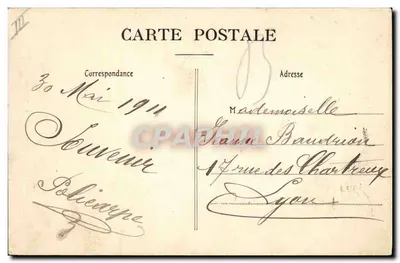 III
CARTE POSTALE
Correspondance
Adresse
30 Mai 1911
Souvenir
Policarpe
Mademoiselle
Baudrion
17 rue des Chartreux
Lyon